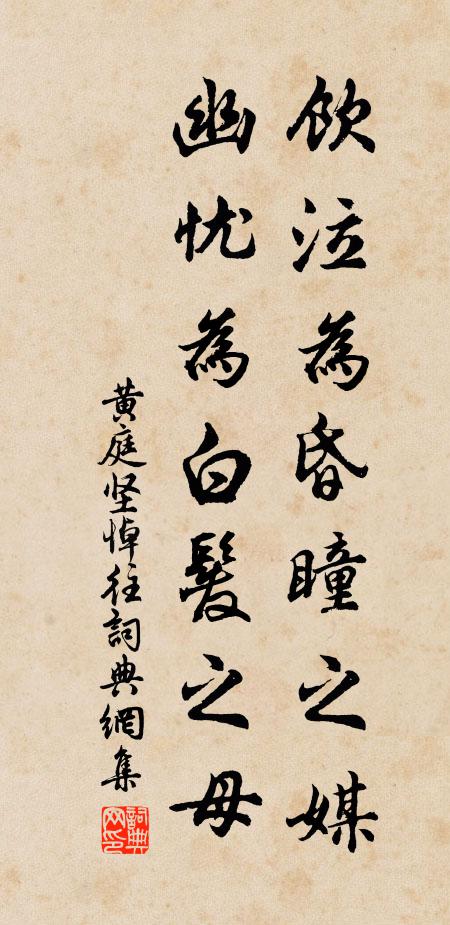 飲泣為昏瞳之媒
幽忧為白髮之母
黄庭坚悼往詞典網集
詞典網印